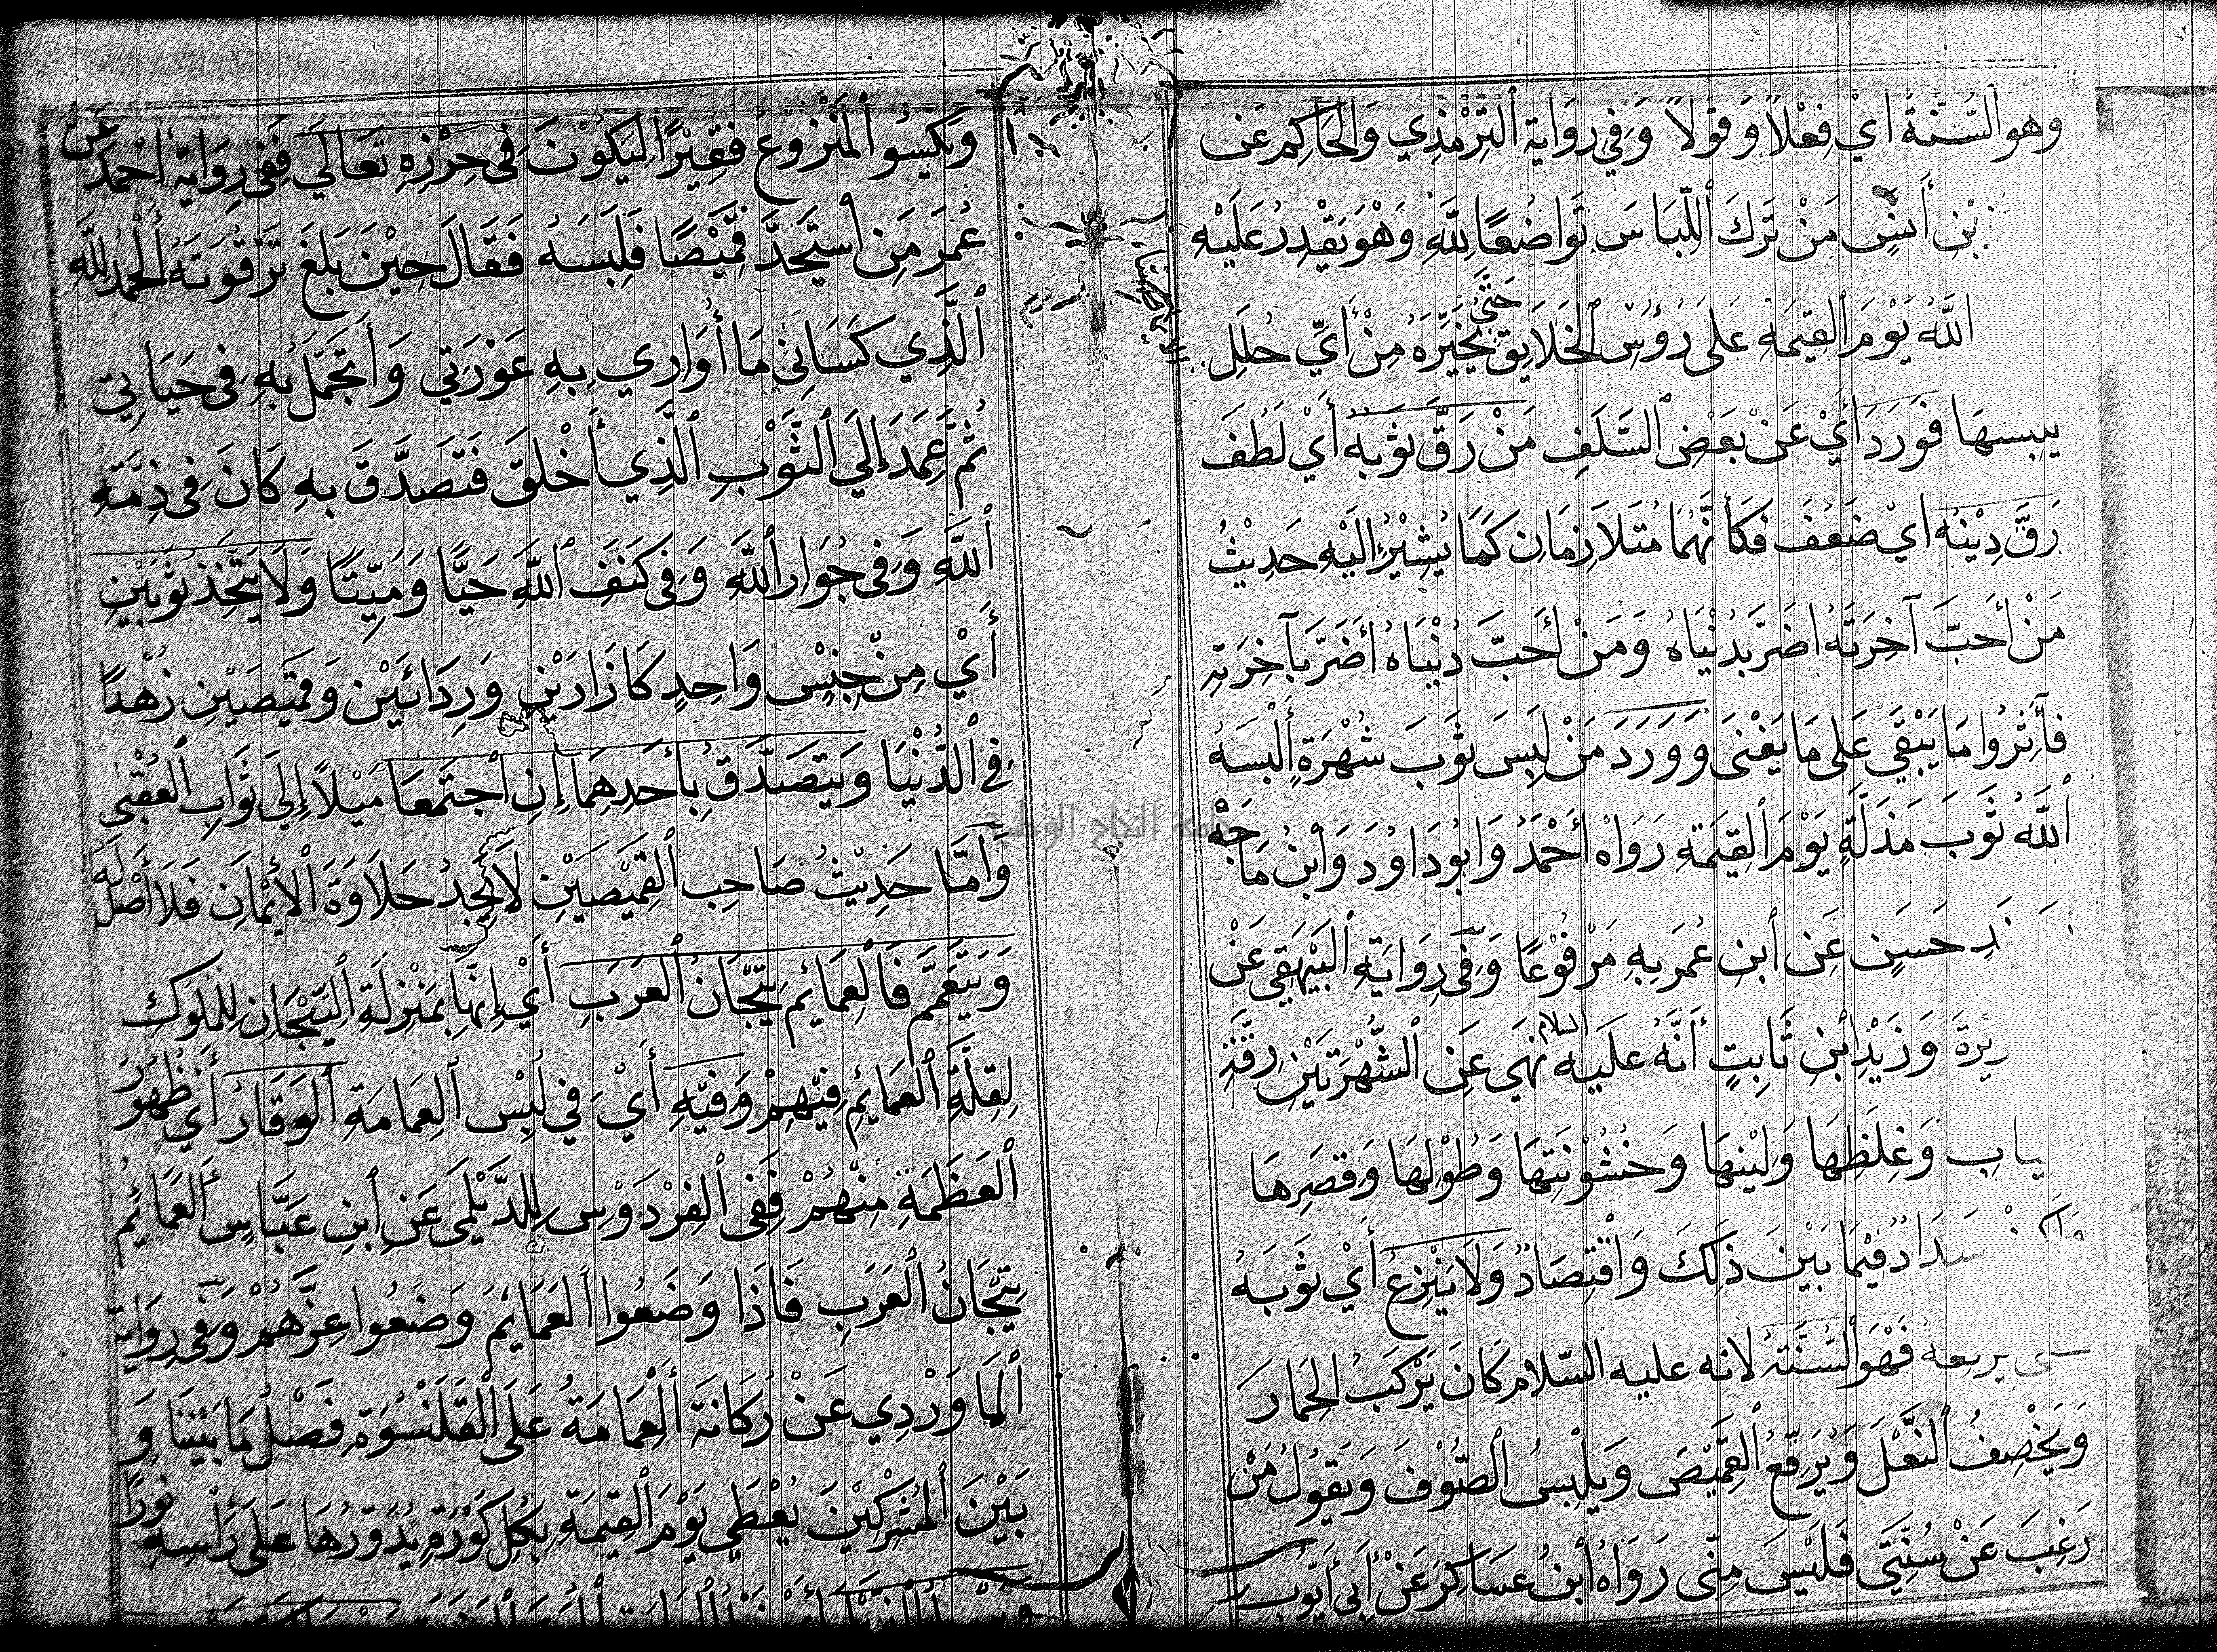 وهو السُّنَّةُ ايْ فِعْلاً وَقَوْلاً وَفِي رِوَايَةِ ٱلتِّرْمِذِي وَالحَاكِمِ عَن
بْنِ أَنَسٍ مَنْ تَرَكَ ٱللِّبَاسَ تَوَاضُعًا لِلَّهِ وَهْوَ يَقْدِرُ عَلَيْهِ
اللَّهُ يَوْمَ ٱلقِيٰمَةِ عَلَى رُؤُسِ ٱلخَلَايِقِ حَتَّى يُخَيِّرَهُ مِنْ أَيِّ حُلَلِ
يلبسها فَوَرَدَ أَيْ عَنْ بَعْضِ ٱلسَّلَفِ مَنْ رَقَّ ثَوْبُهُ أَيْ لَطُفَ
رَقَّ دِيْنُهُ ايْ ضَعُفَ فَكَأَنَّهُمَا مُتَلَازِمَانِ كَمَا يُشِيْرُ إِلَيْهِ حَدِيْثُ
مَنْ أَحَبَّ آخِرَتَهُ اضَرَّ بِدُنْيَاهُ وَمَنْ أَحَبَّ دُنْيَاهُ أَضَرَّ بِآخِرَتِهِ
فَأَثِرُوا مَا يَبْقَي عَلَى مَا يَفْنَى وَوَرَدَ مَنْ لَبِسَ ثَوْبَ شُهْرَةٍ أَلْبَسَهُ
ٱللَّهُ ثَوْبَ مَذَلَّةٍ يَوْمَ ٱلقِيٰمَةِ رَوَاهُ أَحْمَدُ وَابُودَاوُدَ وَابْنُ مَاجَهْ
حَسَنٍ عَنِ ٱبْنِ عُمَرَ بِهِ مَرْفُوْعًا وَفِي رِوَايَةِ ٱلبَيْهَقِي عَنْ
وَزَيْدِ ابْنِ ثَابِتٍ أَنَّهُ عَلَيْهِ السلام نَهَي عَنِ ٱلشُّهْرَتَيْنِ رِقَّةِ
وَغِلَظِهَا وَلِيْنِهَا وَخُشُوْنَتِهَا وَطُوْلِهَا وَقِصَرِهَا
سَدَادٌ فِيْمَا بَيْنَ ذَلِكَ وَاقْتِصَادٌ وَلَا يَنْزِعُ أَيْ ثَوْبَهُ
يرقعه فَهْوَ ٱلسُّنَّةُ لانه عليه السّلام كَانَ يَرْكَبُ الحِمَارَ
وَيَخْصِفُ ٱلنَّعْلَ وَيُرَقِّعُ ٱلقَمِيْصَ وَيَلْبَسُ ٱلصُّوْفَ وَيَقُوْلُ مَنْ
رَغِبَ عَنْ سُنَّتِي فَلَيْسَ مِنِّي رَوَاهُ ابْنُ عَسَاكِرَ عَنْ أَبِي أَيُّوْب
وَيَكْسُو ٱلمَنْزُوْعُ فَقِيْرًا لِيَكُوْنَ فِي حِرْزِهِ تَعَالَي فَفِي رِوَايَةِ أَحْمَدَ عَنْ
عُمَرَ مَنِ اسْتَجَدَّ قَمِيْصًا فَلَبِسَهُ فَقَالَ حِيْنَ بَلَغَ تَرْقُوَتَهُ الحَمْدُ لِلَّهِ
ٱلَّذِي كَسَانِي مَا أُوَارِي بِهِ عَوْرَتِي وَأَتَجَمَّلُ بِهِ فِي حَيَاتِي
ثُمَّ عَمَدَ إِلَي ٱلثَّوْبِ ٱلَّذِي أَخْلَقَ فَتَصَدَّقَ بِهِ كَانَ فِي ذِمَّةِ
ٱللَّهِ وَفِي جُوَارِ ٱللَّهِ وَفِي كَنَفِ ٱللَّهِ حَيًّا وَمَيِّتًا وَلَا يَتَّخِذُ ثَوْبَيْنِ
أَيْ مِنْ جِنْسٍ وَاحِدٍ كَازَارَيْنِ وَرِدَائَيْنِ وَقَمِيْصَيْنِ زُهْدًا
فِي ٱلدُّنْيَا وَيَتَصَدَّقُ بِأَحَدِهِمَا إِنِ اجْتَمَعَا مَيْلاً إِلَي ثَوَابِ ٱلعُقْبٰى
وَأَمَّا حَدِيْثُ صَاحِبِ ٱلقَمِيْصَيْنِ لَا يَجِدُ حَلَاوَةَ ٱلأِيْمَانِ فَلَا أَصْلَ لَهُ
وَيَتَعَمَّمَ فَالعَمَائِمُ تِيْجَانُ ٱلعَرَبِ أَيْ إِنَّهَا بِمَنْزِلَةِ ٱلتِّيْجَانِ لِلْمُلُوْكِ
لِقِلَّةِ ٱلعَمَائِمِ فِيْهِمْ وَفِيْهِ أَيْ فِي لُبْسِ ٱلعِمَامَةِ ٱلوَقَارُ أَيْ ظُهُوْرُ
ٱلعَظَمَةِ مِنْهُمْ فَفِي ٱلفِرْدَوْسِ لِلدَّيْلَمِي عَنِ ٱبْنِ عَبَّاسٍ ٱلعَمَائِمُ
تِيْجَانُ ٱلعَرَبِ فَاذَا وَضَعُوا ٱلعَمَايِمَ وَضَعُوا عِزَّهُمْ وَفِي رِوَايَة
ٱلمَاوَرْدِي عَنْ رُكَانَةَ ٱلعِمَامَةُ عَلَى ٱلْقَلَنْسُوَةِ فَصْلُ مَا بَيْنَنَا وَ
بَيْنَ ٱلمُشْرِكِيْنَ يُعْطَي يَوْمَ ٱلقِيٰمَةِ بِكُلِّ كَوْرَةٍ يُدَوِّرُهَا عَلَى رَأْسِهِ نُوْرًا
جامعة النجاح الوطنية